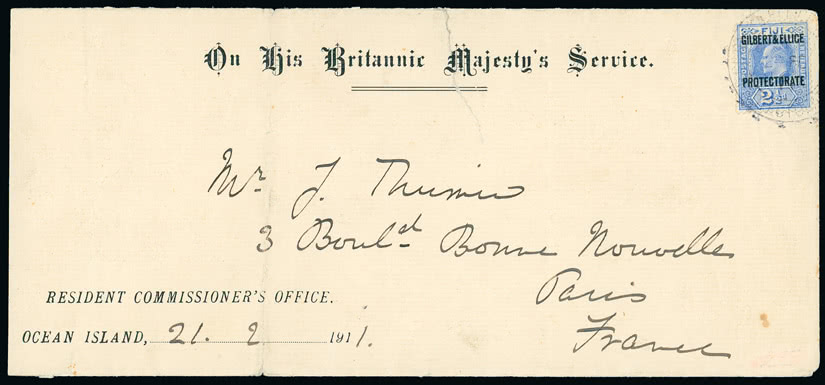 On His Britannic Majesty's Service.
FIJI
GILBERT & ELLICE
PROTECTORATE
2½d
Mr. J. Thimie
3 Boul.d Bonne Nouvelle
Paris
France
RESIDENT COMMISSIONER'S OFFICE.
OCEAN ISLAND, 21. 2 1911.